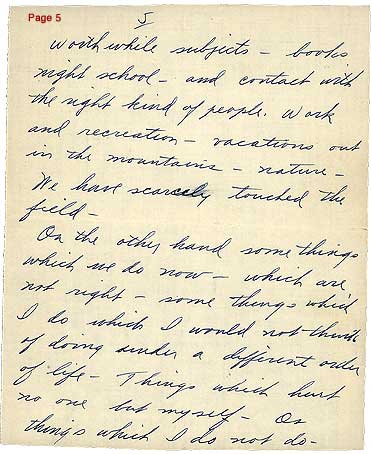 Page 5
5
worth while subjects - books
night school - and contact with
the right kind of people. Work
and recreation - vacations out
in the mountains - nature -
We have scarcely touched the
field -
On the other hand some things
which we do now - which are
not right - some things which
I do which I would not think
of doing under a different order
of life - Things which hurt
no one but myself - Or
things which I do not do -